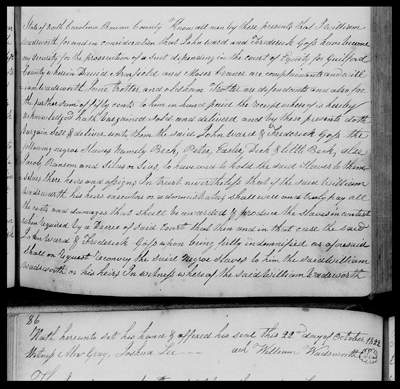 State of North Carolina Rowan County Know all men by these presents that I William
Wadsworth for and in consideration that John Ward and Frederick Goss have become
my security for the prosecution of a suit depending in the court of Equity for Guilford
County wherein David and Moses are complainants and Wil
liam Wadsworth Trotter and Trotter are defendants and also for
the further sum of fifty cents to him in hand paid the receipt whereof is hereby
acknowledged hath bargained sold and delivered and by these presents doth
bargain sell & deliver unto them the said John Ward & Frederick Goss the
following negroe Slaves Namely Beck, Peter, Easter, Dick & little Beck, also
Jacob Ransom and Silas to have and to hold the said Slaves to them
selves their heirs and assigns In trust nevertheless that if the said William
Wadsworth his heirs executors or administrators shall well and truly pay all
the costs and damages that shall be awarded & produce the Slaves in contest
when required by a Decree of said Court that then and in that case the said
John Ward & Frederick Goss upon being fully indemnified as aforesaid
Shall on request reconvey the said Negroe Slaves to him the said William
Wadsworth or his heirs In witness whereof the said William Wadsworth
86
Hath hereunto set his hand & affixed his seal this 22nd day of October 1822
Witness Alex Gray, Joshua Lee William Wadsworth